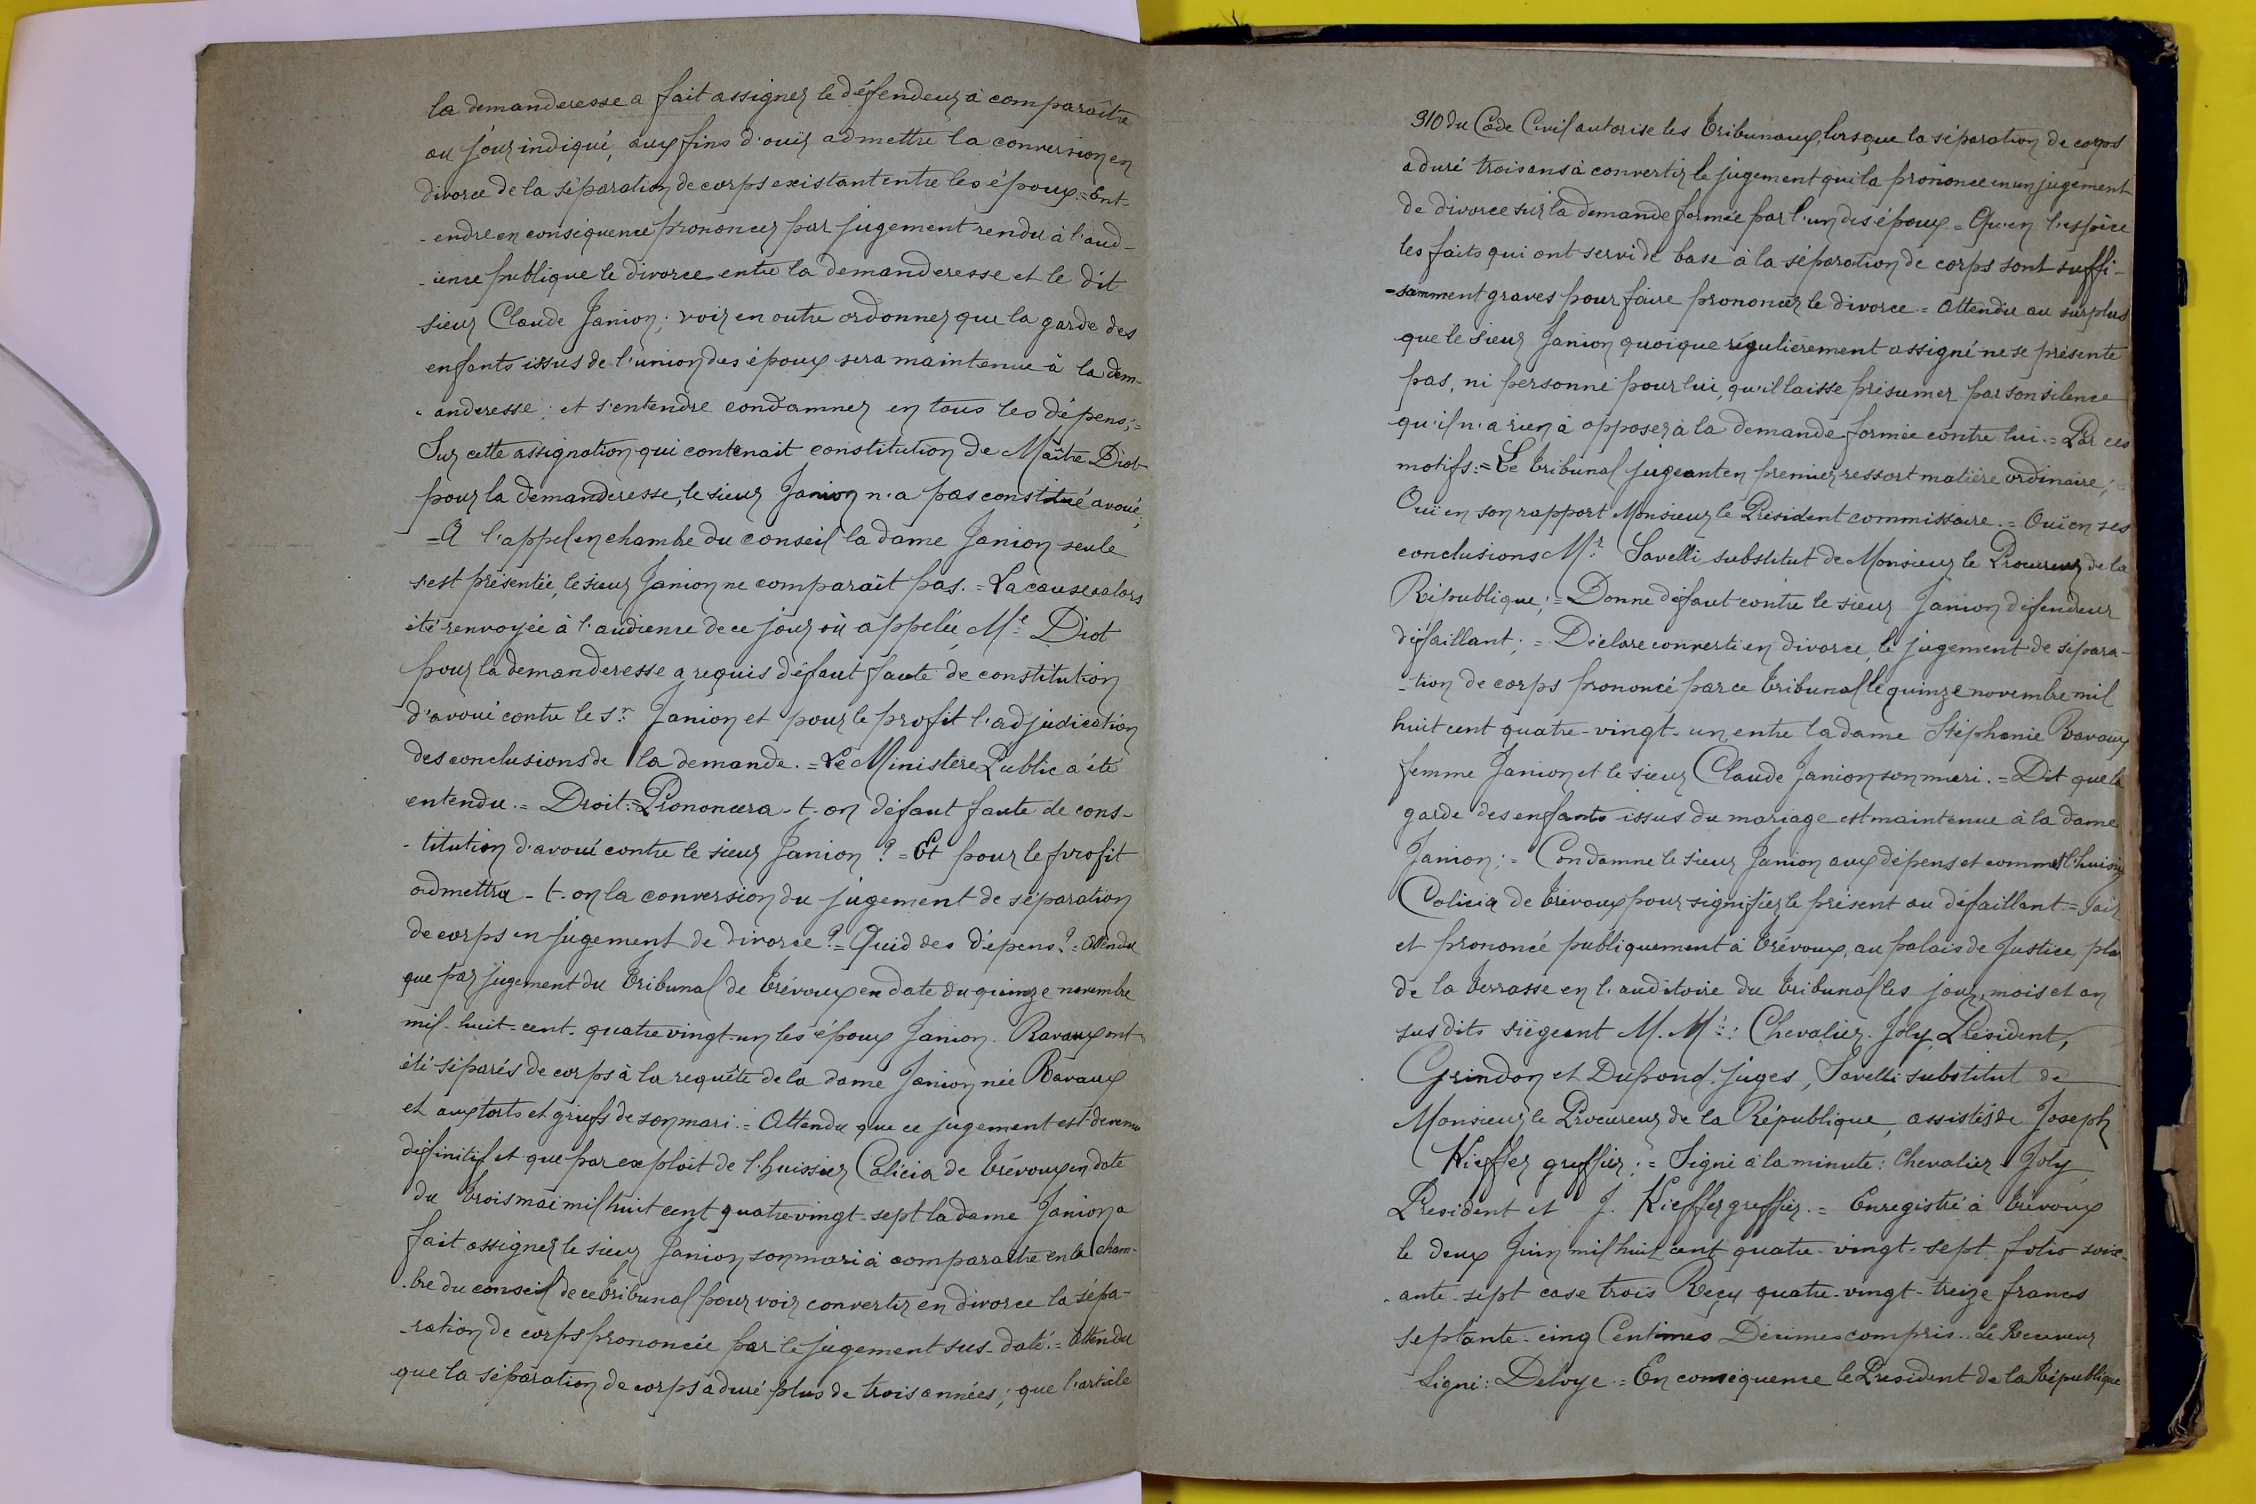 la demanderesse a fait assigner le défendeur à comparaître
au jour indiqué, aux fins d'ouïr admettre la conversion en
divorce de la séparation de corps existant entre les époux = Ent-
-endre en conséquence prononcer par jugement rendu à l'aud-
-ience publique le divorce entre la demanderesse et le dit
sieur Claude Janion; voir en outre ordonner que la garde des
enfants issus de l'union des époux sera maintenue à la dem-
-anderesse; et s'entendre condamner en tous les dépens;=
Sur cette assignation qui contenait constitution de Maître Diot
pour la demanderesse, le sieur Janion n'a pas constitué avoué;
=A l'appel en chambre du conseil la dame Janion seule
s'est présentée, le sieur Janion ne comparaît pas.= La cause a alors
été renvoyée à l'audience de ce jour où appelée, Me Diot
pour la demanderesse a requis défaut faute de constitution
d'avoué contre le Sr Janion et pour le profit l'adjudication
des conclusions de la demande.= Le Ministère Public a été
entendu.= Droit:= Prononcera-t-on défaut faute de cons-
-titution d'avoué contre le sieur Janion ?= Et pour le profit
admettra-t-on la conversion du jugement de séparation
de corps en jugement de divorce ?= Quid des dépens ?= Attendu
que par jugement du tribunal de Trévoux en date du quinze novembre
mil-huit-cent-quatre vingt-un les époux Janion-Ravaux ont
été séparés de corps à la requête de la dame Janion née Ravaux
et aux torts et griefs de son mari.= Attendu que ce jugement est devenu
définitif et que par exploit de l'huissier Calicia de Trévoux en date
du trois mai mil huit cent quatre vingt-sept la dame Janion a
fait assigner le sieur Janion son mari à comparaître en la cham-
-bre du conseil de ce tribunal pour voir convertir en divorce la sépa-
-ration de corps prononcée par le jugement sus-daté.= Attendu
que la séparation de corps a duré plus de trois années; que l'article
310 du Code Civil autorise les tribunaux, lorsque la séparation de corps
a duré trois ans à convertir le jugement qui la prononce en un jugement
de divorce sur la demande formée par l'un des époux = Qu'en l'espèce
les faits qui ont servi de base à la séparation de corps sont suffi-
=samment graves pour faire prononcer le divorce = Attendu au surplus
que le sieur Janion quoique régulièrement assigné ne se présente
pas, ni personne pour lui, qu'il laisse présumer par son silence
qu'il n'a rien à opposer à la demande formée contre lui.= Par ces
motifs:= Le tribunal jugeant en premier ressort matière ordinaire;=
Ouï en son rapport Monsieur le Président commissaire.= Ouï en ses
conclusions Mr Savelli substitut de Monsieur le Procureur de la
République;= Donne défaut contre le sieur Janion défendeur
défaillant;= Déclare converti en divorce, le jugement de sépara-
-tion de corps prononcé par ce tribunal le quinze novembre mil
huit cent quatre-vingt-un entre la dame Stéphanie Ravaux
femme Janion et le sieur Claude Janion son mari.= Dit que la
garde des enfants issus du mariage est maintenue à la dame
Janion;= Condamne le sieur Janion aux dépens et commet l'huissier
Calicia de Trévoux pour signifier le présent au défaillant.= Fait
et prononcé publiquement à Trévoux, au palais de Justice, pla
de la terrasse en l'auditoire du tribunal les jour, mois et an
susdits siègeant M.M.rs: Chevalier-Joly, Président,
Grindon et Dupond juges, Savelli substitut de
Monsieur le Procureur de la République, assistés de Joseph
Kieffer greffier;= Signé à la minute: Chevalier-Joly,
Président et J. Kieffer greffier.= Enregistré à Trévoux
le deux Juin mil huit cent quatre-vingt-sept folio soix-
-ante-sept case trois Reçu quatre-vingt-treize francs
septante-cinq Centimes Décimes compris. Le Receveur
Signé: Deloye.= En conséquence le Président de la République